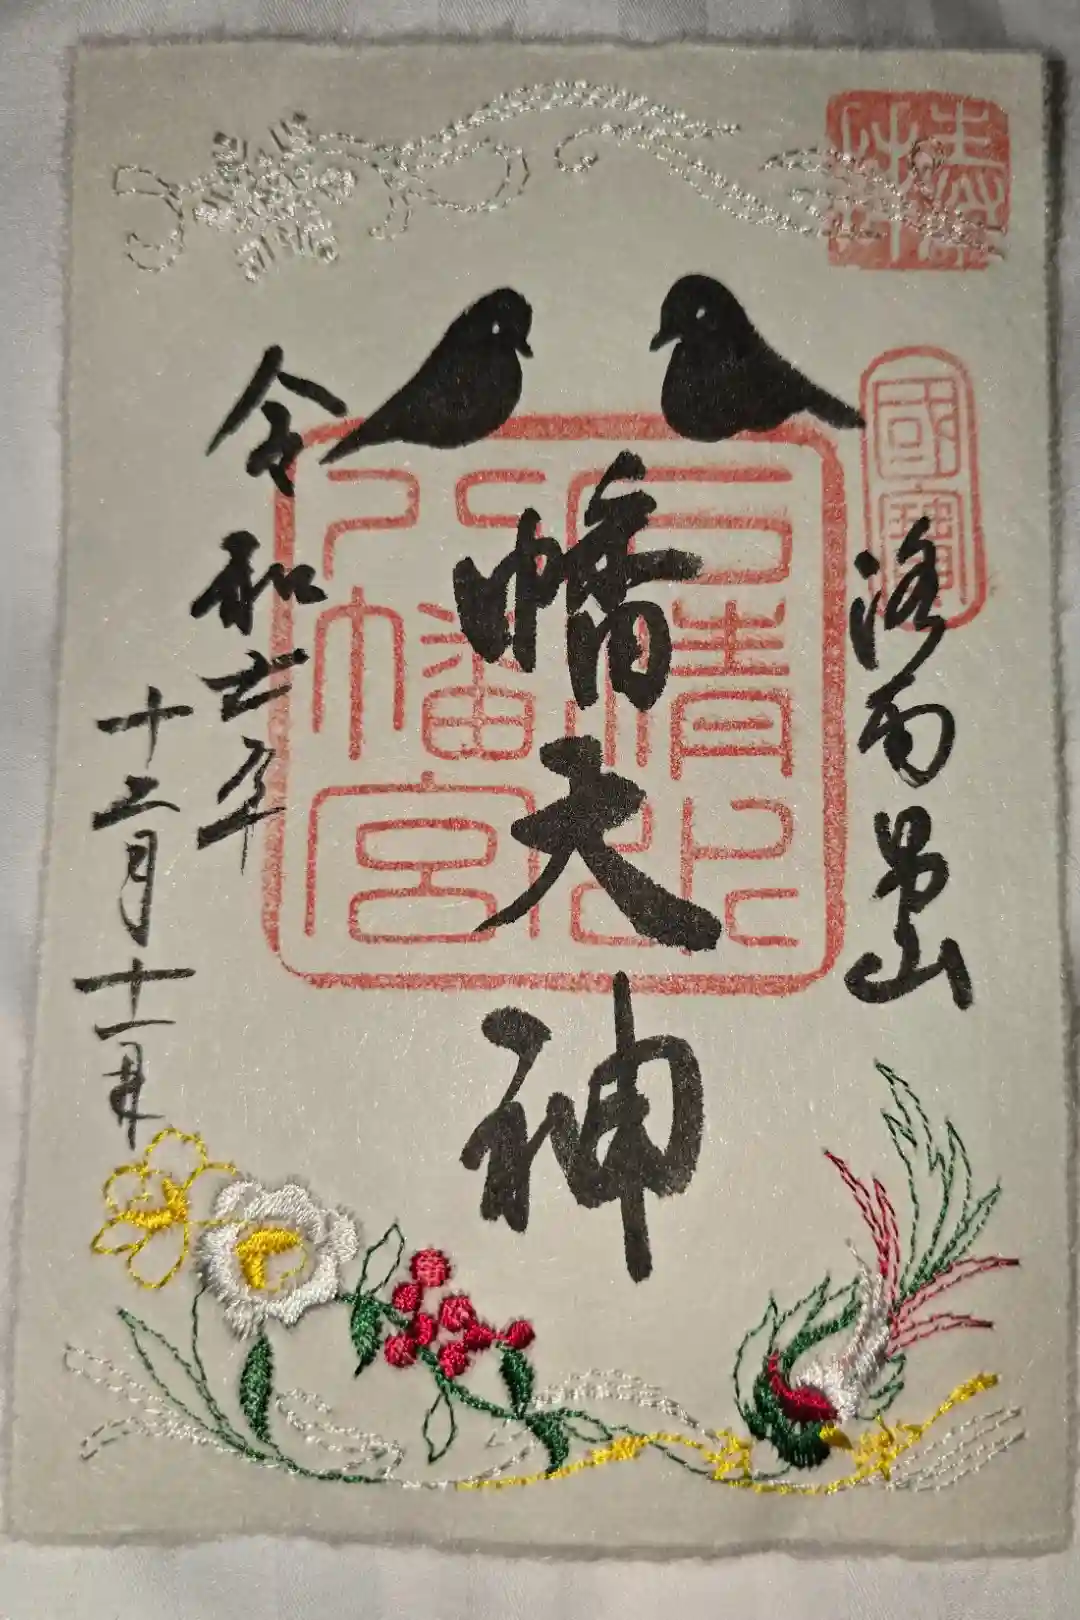 奉拜
國寶
洛南男山
幡大神
石清水
八幡宮
令和七年
十二月十一日